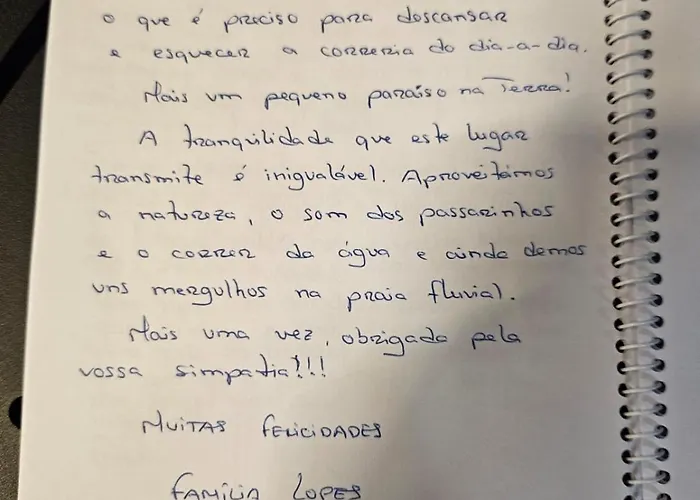 o que é preciso para descansar
e esquecer a correria do dia-a-dia.
Mais um pequeno paraíso na Terra!
A tranquilidade que este lugar
transmite é inigualável. Aproveitámos
a natureza, o som dos passarinhos
e o correr da água e ainda demos
uns mergulhos na praia fluvial.
Mais uma vez, obrigada pela
vossa simpatia!!!
MUITAS FELICIDADES
FAMÍLIA LOPES